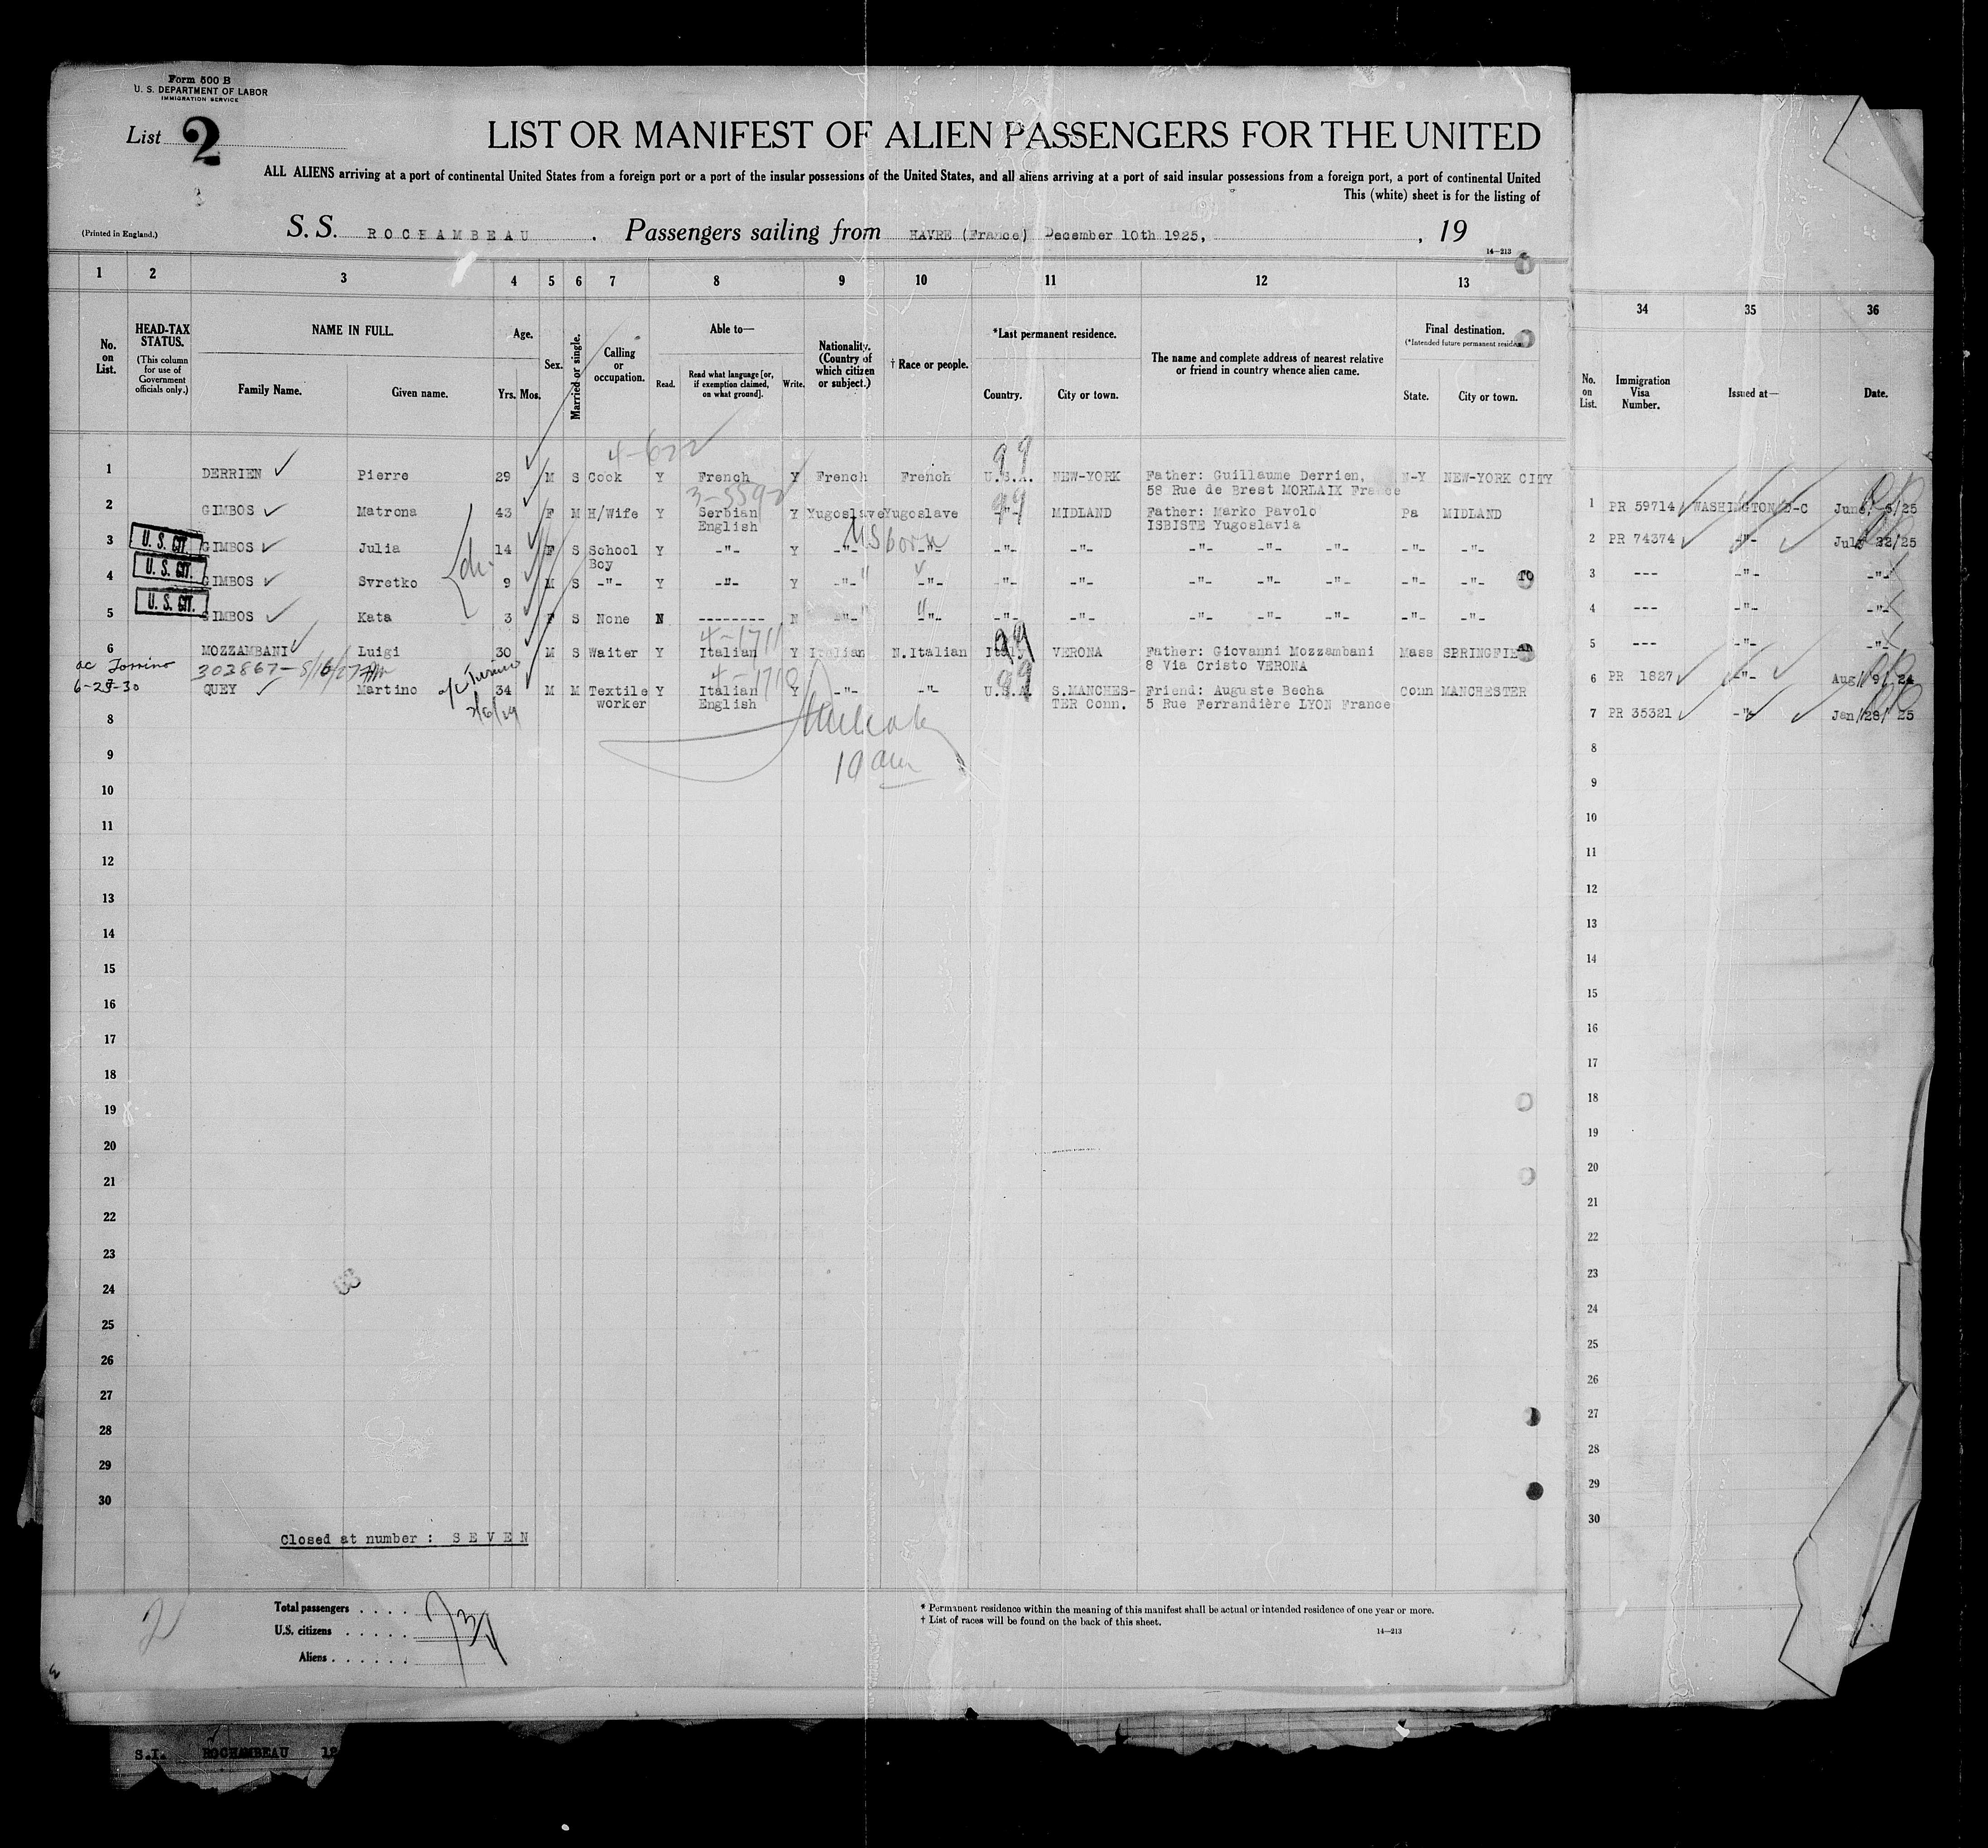 Form 500 B
U. S. DEPARTMENT OF LABOR
IMMIGRATION SERVICE
List 2
LIST OR MANIFEST OF ALIEN PASSENGERS FOR THE UNITED
ALL ALIENS arriving at a port of continental United States from a foreign port or a port of the insular possessions of the United States, and all aliens arriving at a port of said insular possessions from a foreign port, a port of continental United
This (white) sheet is for the listing of
(Printed in England.)
S. S. ROCHAMBEAU . Passengers sailing from HAVRE (France) December 10th 1925, , 19
14—213
1 2 3 4 5 6 7 8 9 10 11 12 13
34 35 36
No. on List.
HEAD-TAX STATUS.
(This column for use of Government officials only.)
NAME IN FULL.
Family Name. Given name.
Age.
Yrs. Mos.
Sex.
Married or single.
Calling or occupation.
Able to—
Read.
Read what language [or, if exemption claimed, on what ground].
Write.
Nationality. (Country of which citizen or subject.)
† Race or people.
*Last permanent residence.
Country. City or town.
The name and complete address of nearest relative or friend in country whence alien came.
Final destination.
(*Intended future permanent
State. City or town.
No. on List.
Immigration Visa Number.
Issued at—
Date.
4-622
99
1 DERRIEN Pierre 29 M S Cook Y French Y French French U.S.A. NEW-YORK Father: Guillaume Derrien, N-Y NEW-YORK CITY
58 Rue de Brest MORLAIX France
2 GIMBOS Matrona 43 F M H/Wife Y Serbian Y Yugoslave Yugoslave -"- MIDLAND Father: Marko Pavolo Pa MIDLAND
English ISBISTE Yugoslavia
99
US born
3 U. S. CIT. GIMBOS Julia 14 F S School Y -"- Y -"- -"- -"- -"- -"- -"- -"- -"- -"-
Boy
4 U. S. CIT. GIMBOS Svretko 9 M S -"- Y -"- Y -"- -"- -"- -"- -"- -"- -"- -"- -"-
5 U. S. CIT. GIMBOS Kata 3 F S None N -------- N -"- -"- -"- -"- -"- -"- -"- -"- -"-
4-1711
99
6 MOZZAMBANI Luigi 30 M S Waiter Y Italian Y Italian N.Italian Italy VERONA Father: Giovanni Mozzambani Mass SPRINGFIELD
8 Via Cristo VERONA
303867-5/16/27
6-23-30
4-1710
99
7 QUEY Martino 34 M M Textile Y Italian Y -"- -"- U.S.A. S.MANCHES- Friend: Auguste Becha Conn MANCHESTER
worker English TER Conn. 5 Rue Ferrandière LYON France
2/6/29
10 am
8
9
10
11
12
13
14
15
16
17
18
19
20
21
22
23
24
25
26
27
28
29
30
1 PR 59714 WASHINGTON D-C June, 5/25
2 PR 74374 -"- July 22/25
3 --- -"- -"-
4 --- -"- -"-
5 --- -"- -"-
6 PR 1827 -"- Aug/ 9/ 24
7 PR 35321 -"- Jan/28/ 25
8
9
10
11
12
13
14
15
16
17
18
19
20
21
22
23
24
25
26
27
28
29
30
Closed at number : S E V E N
Total passengers . . . . 7
U.S. citizens . . . . . 3
Aliens . . . . . . 4
* Permanent residence within the meaning of this manifest shall be actual or intended residence of one year or more.
† List of races will be found on the back of this sheet.
14—213
S.I. ROCHAMBEAU 12